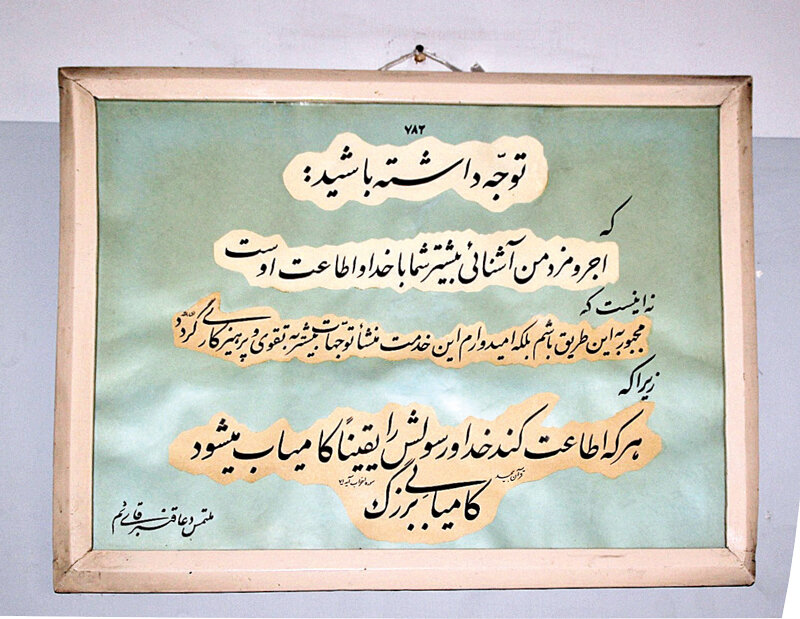 ۷۸۲
توجّه داشته باشید:
که
اجر و مزد من آشنائی بیشتر شما با خدا و اطاعت اوست
نه اینست که
مجبور به این طریق باشم بلکه امیدوارم این خدمت منشأ توجّهات بیشتر به تقوی و پرهیزگاری گردد
زیرا که
هر که اطاعت کند خدا و رسولش را یقیناً کامیاب میشود
کامیابی بزرگ
قرآن مجید
ملتمس دعا قنبر قاری‌ئم